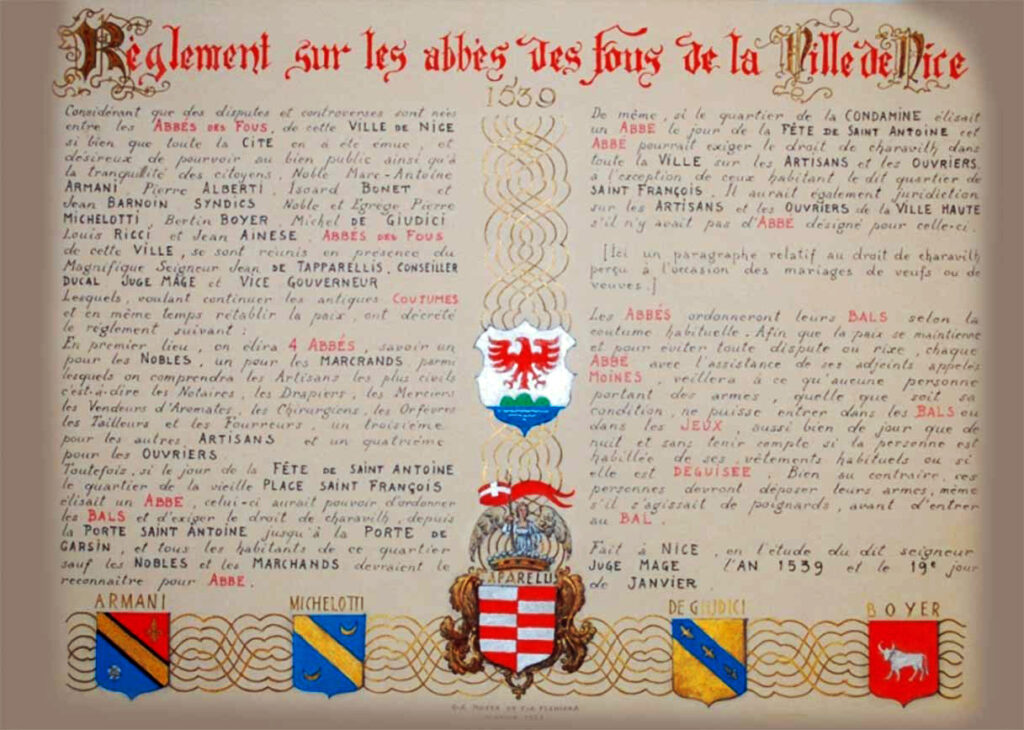 Règlement sur les abbès des fous de la Ville de Nice
1539
Considérant que des disputes et controverses sont nées
entre les ABBÉS DES FOUS, de cette VILLE DE NICE
si bien que toute la CITÉ en a été émue, et
désireux de pourvoir au bien public ainsi qu'à
la tranquilité des citoyens, Noble Marc-Antoine
ARMANI, Pierre ALBERTI, Isoard BONET et
Jean BARNOIN SYNDICS Noble et Egrège Pierre
MICHELOTTI, Bertin BOYER, Michel DE GIUDICI
Louis RICCI et Jean AINESE, ABBÉS DES FOUS
de cette VILLE, se sont réunis en présence du
Magnifique Seigneur Jean DE TAPPARELLIS, CONSEILLER
DUCAL JUGE MAGE et VICE GOUVERNEUR
Lesquels, voulant continuer les antiques COUTUMES
et en même temps rétablir la paix, ont décrété
le règlement suivant :
En premier lieu, on élira 4 ABBÉS, savoir un
pour les NOBLES, un pour les MARCHANDS parmi
lesquels on comprendra les Artisans les plus civils
c'est-à-dire les Notaires, les Drapiers, les Merciers
les Vendeurs d'Aromates, les Chirurgiens, les Orfèvres
les Tailleurs et les Fourreurs, un troisième
pour les autres ARTISANS et un quatrième
pour les OUVRIERS
Toutefois, si le jour de la FÊTE DE SAINT ANTOINE
le quartier de la vieille PLACE SAINT FRANÇOIS
élisait un ABBÉ, celui-ci aurait pouvoir d'ordonner
les BALS et d'exiger le droit de charavilh, depuis
la PORTE SAINT ANTOINE jusqu'à la PORTE DE
GARSIN, et tous les habitants de ce quartier
sauf les NOBLES et les MARCHANDS devraient le
reconnaître pour ABBÉ.
De même, si le quartier de la CONDAMINE élisait
un ABBÉ le jour de la FÊTE DE SAINT ANTOINE cet
ABBÉ pourrait exiger le droit de charavilh dans
toute la VILLE sur les ARTISANS et les OUVRIERS
à l'exception de ceux habitant le dit quartier de
SAINT FRANÇOIS. Il aurait également juridiction
sur les ARTISANS et les OUVRIERS de la VILLE HAUTE
s'il n'y avait pas d'ABBÉ désigné pour celle-ci.
[Ici un paragraphe relatif au droit de charavilh
perçu à l'occasion des mariages de veufs ou de
veuves.]
Les ABBÉS ordonneront leurs BALS selon la
coutume habituelle. Afin que la paix se maintienne
et pour éviter toute dispute ou rixe, chaque
ABBÉ avec l'assistance de ses adjoints appelés
MOINES, veillera à ce qu'aucune personne
portant des armes, quelle que soit sa
condition, ne puisse entrer dans les BALS ou
dans les JEUX, aussi bien de jour que de
nuit et sans tenir compte si la personne est
habillée de ses vêtements habituels ou si
elle est DÉGUISÉE. Bien au contraire, ces
personnes devront déposer leurs armes, même
s'il s'agissait de poignards, avant d'entrer
au BAL.
Fait à NICE, en l'étude du dit seigneur
JUGE MAGE l'AN 1539 et le 19e jour
de JANVIER
APARELLIS
ARMANI
MICHELOTTI
DE GIUDICI
BOYER